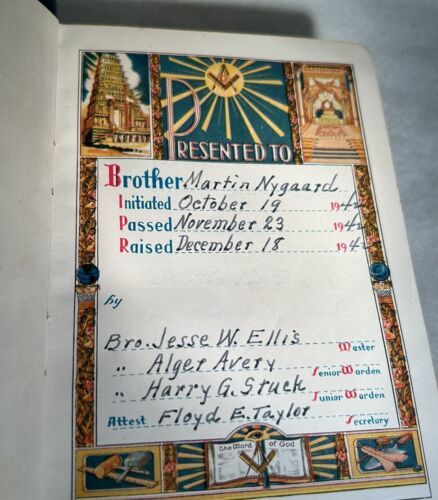 PRESENTED TO
Brother Martin Nygaard
Initiated October 19 1942
Passed November 23 1942
Raised December 18 1942
by
Bro. Jesse W. Ellis Master
" Alger Avery Senior Warden
" Harry G. Stuck Junior Warden
Attest Floyd E. Taylor Secretary
The Word of God